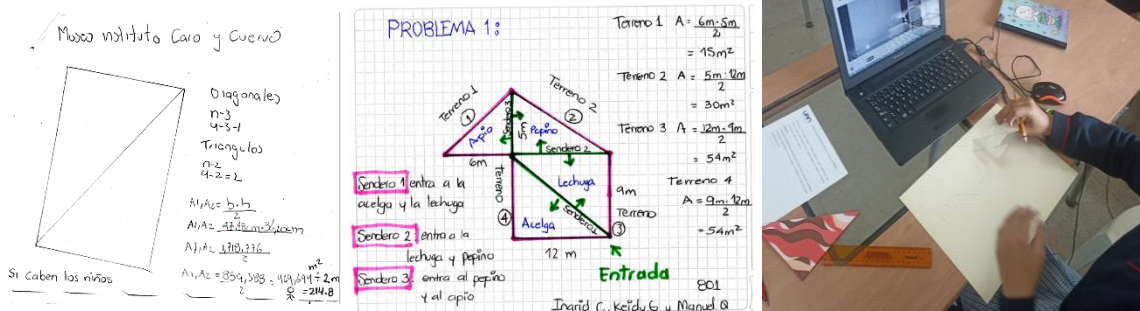 Museo Instituto Caro y Cuervo
Diagonales
n-3
4-3-1
Triangulos
n-2
4-2=2
A1,A2= b.h
2
2
A1,A2= 1718,776
2
A1,A2 = 859,388 = 429,694 ÷ 2m
2
m²
= 214.8
Si caben los niños
PROBLEMA 1:
Terreno 1
①
Apio
Sendero 3
5m
Pepino
Terreno 2
②
6m
Sendero 2
Lechuga
9m
Terreno
④
Acelga
Sendero 1
Terreno
③
12 m
Entrada
Sendero 1 entra a la
acelga y la lechuga
Sendero 2 entra a la
lechuga y pepino
Sendero 3: entra al pepino
y al apio
Terreno 1 A = 6m.5m
2
= 15m²
Terreno 2 A = 5m.12m
2
= 30m²
Terreno 3 A = 12m.9m
2
= 54m²
Terreno 4
A = 9m.12m
2
= 54m²
801
Ingrid C, Keidy G y Manuel Q